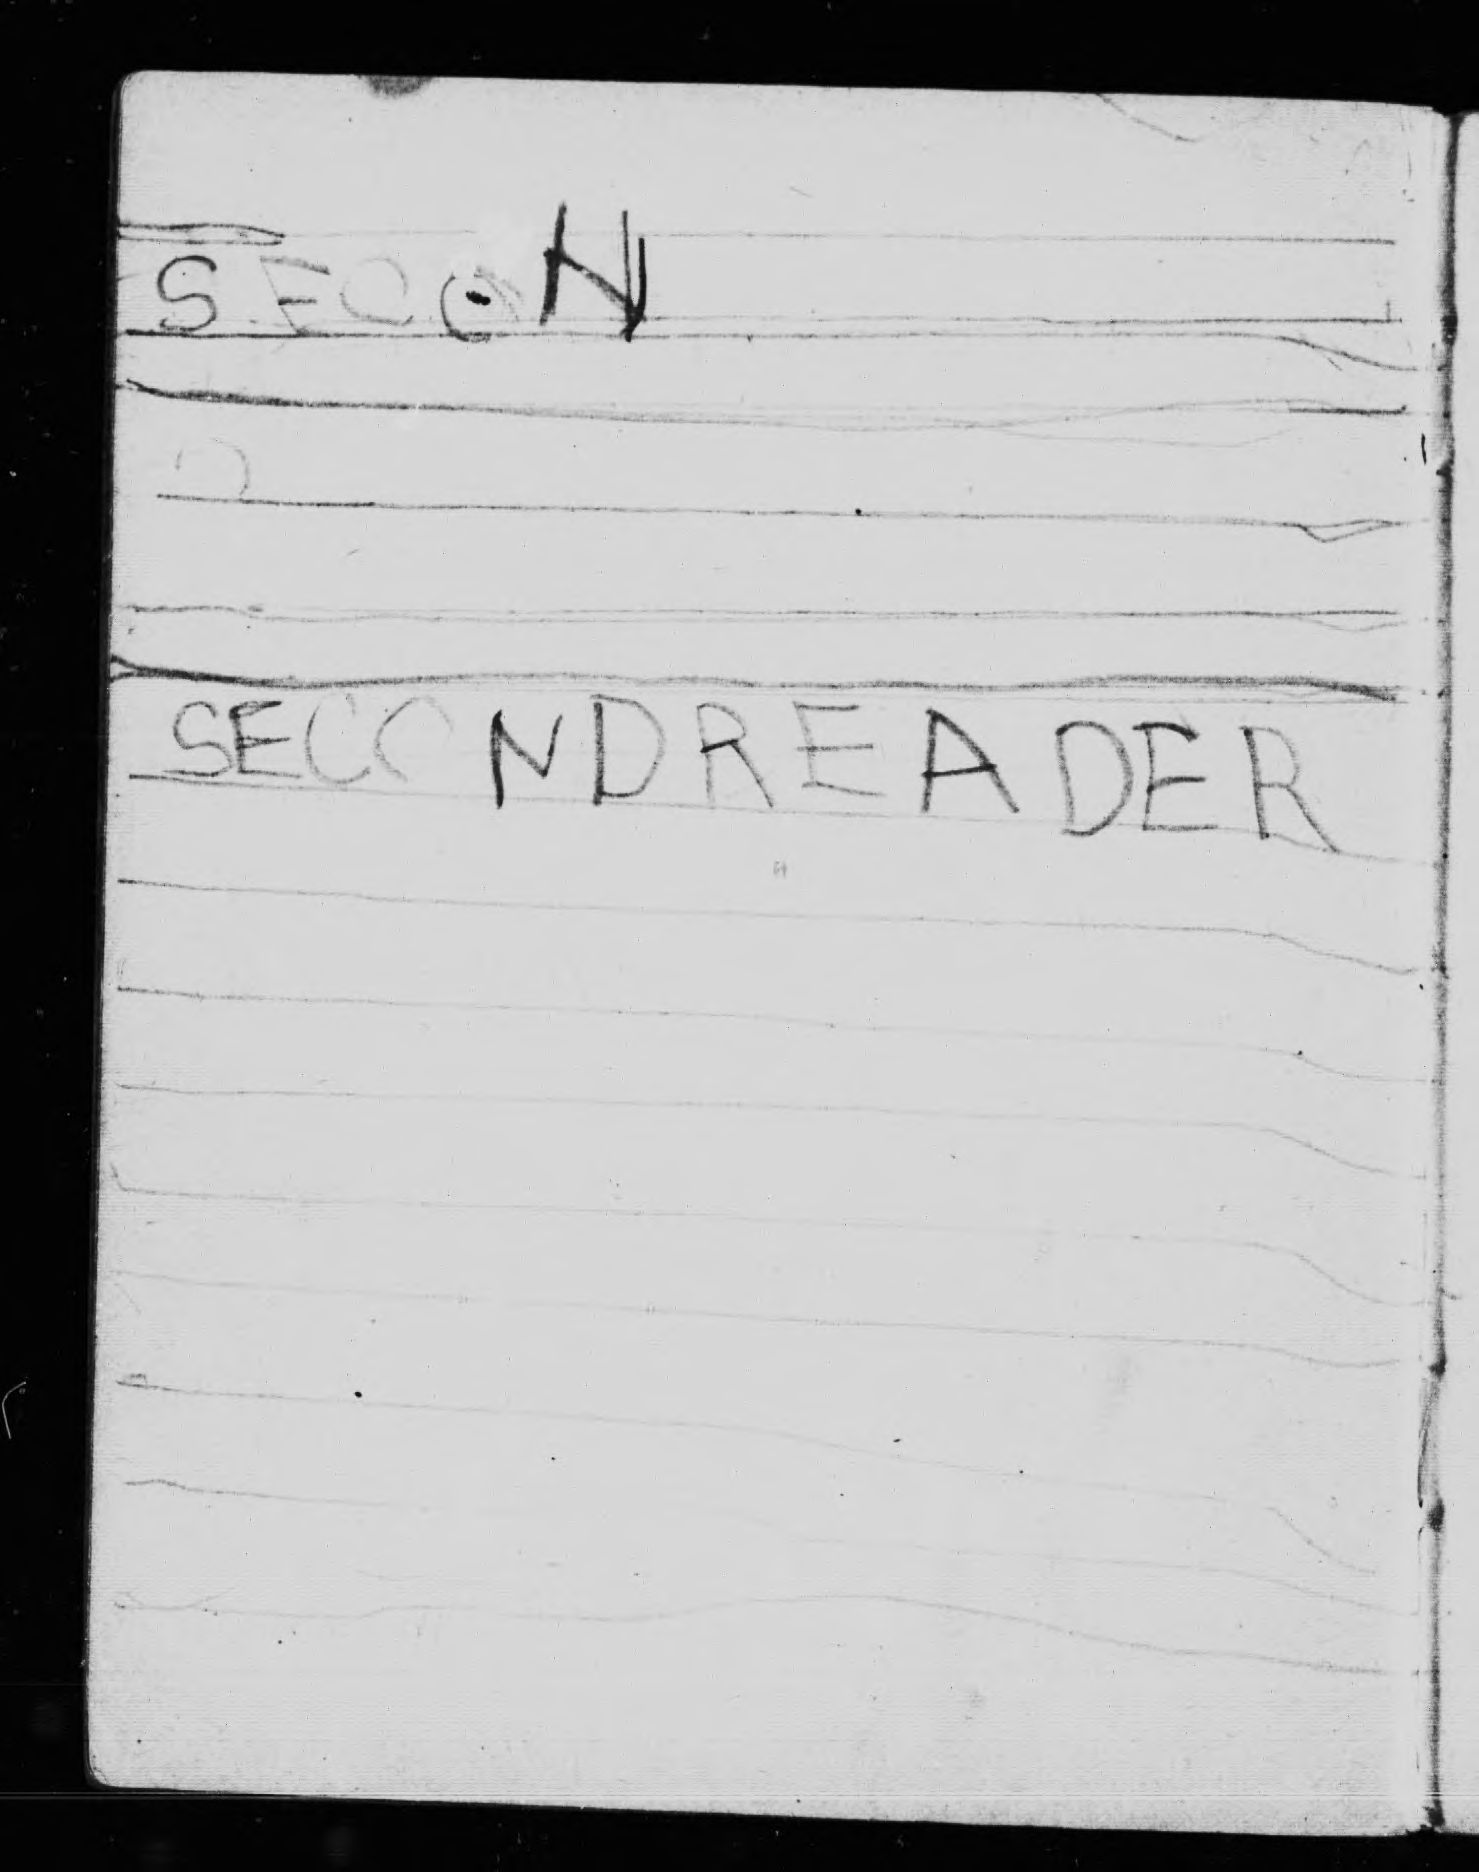 SECON
SECONDREADER